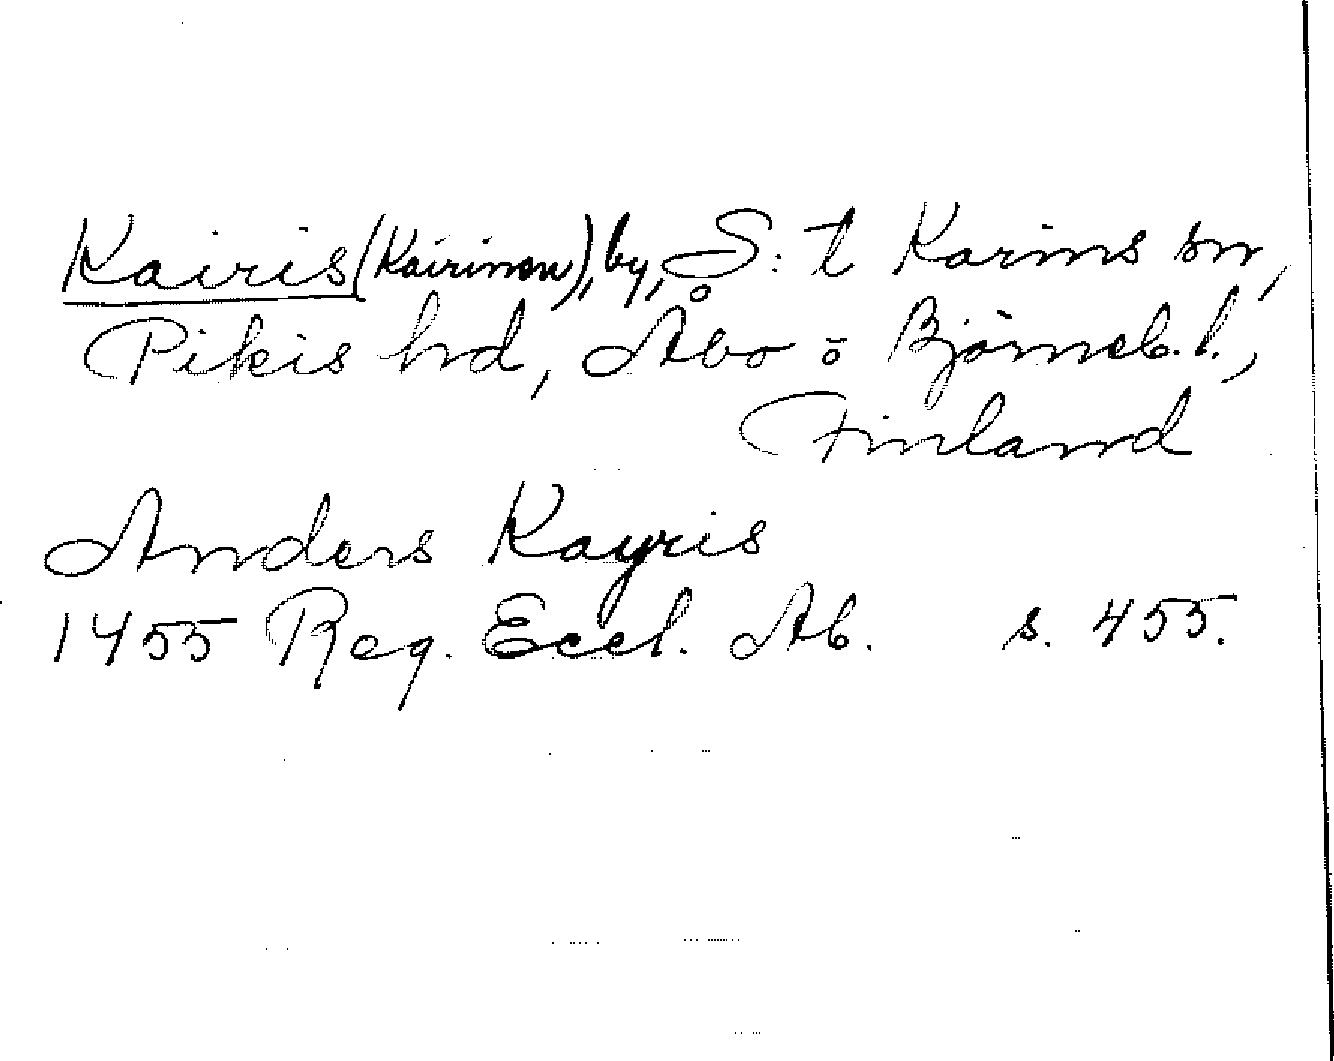 Kairis (Kairinen), by, S:t Karins sn,
Pikis hd, Åbo o Björneb. l.,
Finland
Anders Kayris
1455 Reg. Eccl. Ab. s. 455.